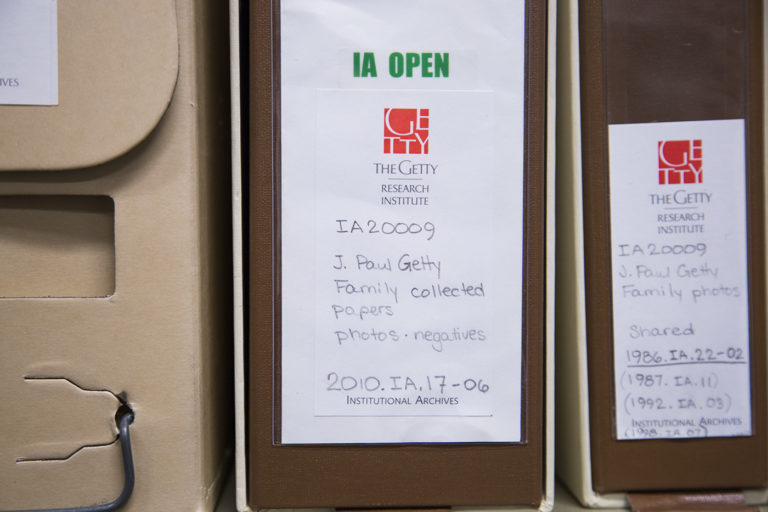 IVES
IA OPEN
GETTY
THE GETTY
RESEARCH
INSTITUTE
IA20009
J. Paul Getty
Family collected
papers
photos · negatives
2010.IA.17-06
INSTITUTIONAL ARCHIVES
GETTY
THE GETTY
RESEARCH
INSTITUTE
IA20009
J. Paul Getty
Family photos
Shared
1986.IA.22-02
(1987.IA.11)
(1992.IA.03)
INSTITUTIONAL ARCHIVES